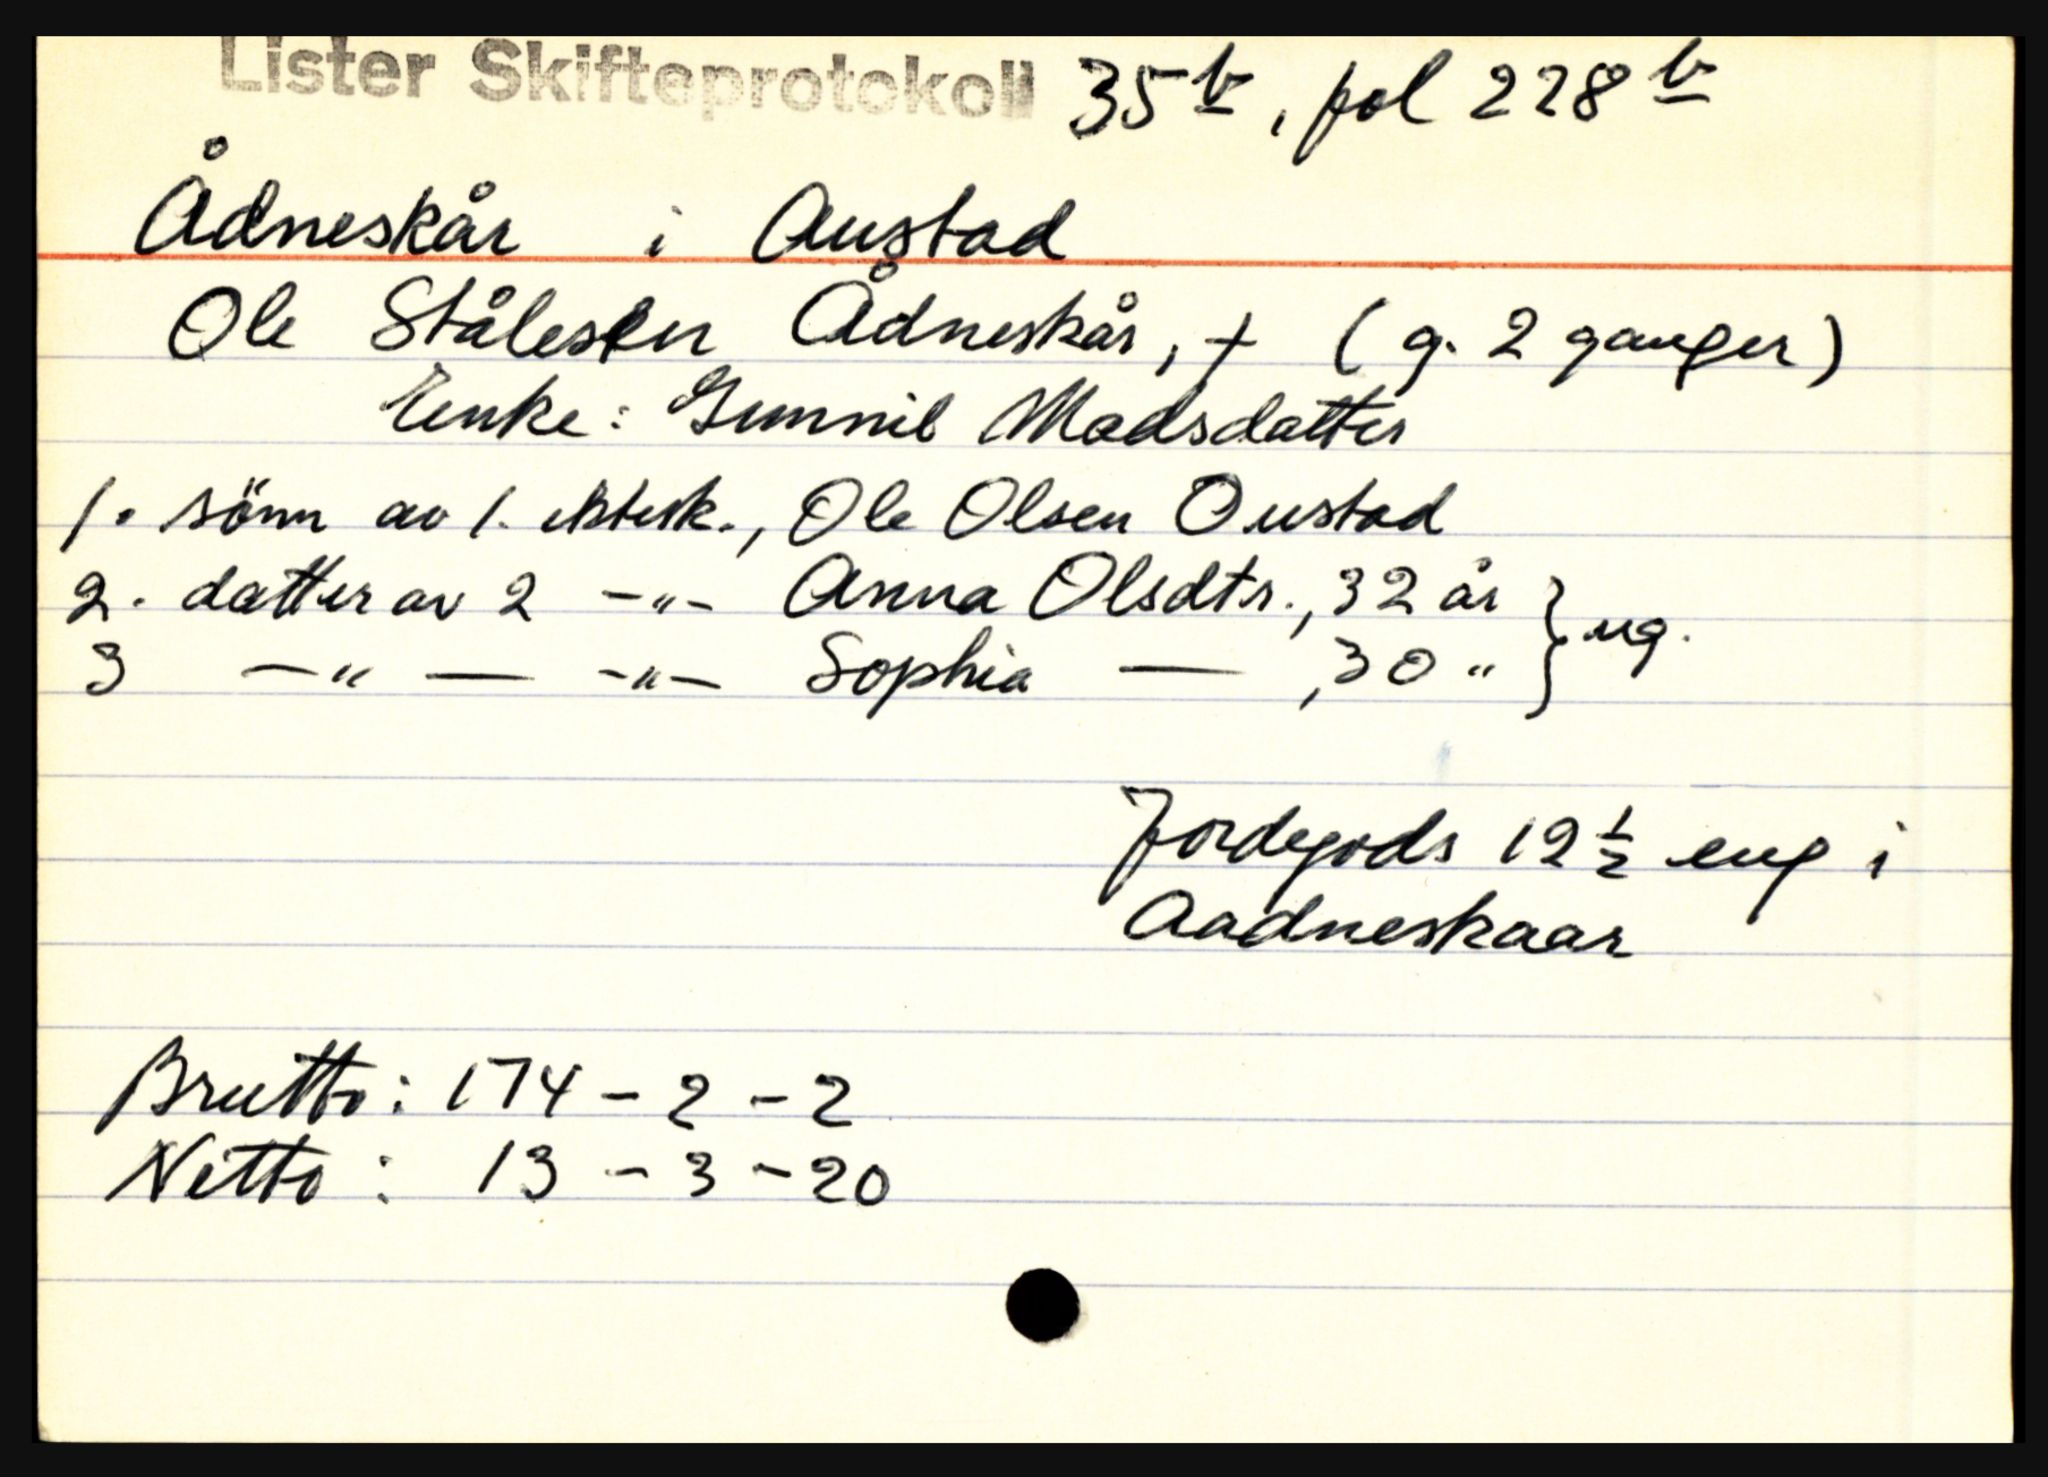 Lister Skifteprotokoll 35 b, fol 228 b
Ådneskår i Austad
Ole Ståles en Ådneskår, + (g. 2 ganger)
Enke: Gunnil Madsdatter
1. sönn av 1. ektesk., Ole Olsen Oustad
2. datter av 2 -"- Anna Olsdtr., 32 år } ug.
3 -"- -"- Sophia — , 30 "
Jordegods 12 1/2 eng i
Aadneskaar
Brutto: 174 - 2 - 2
Netto: 13 - 3 - 20